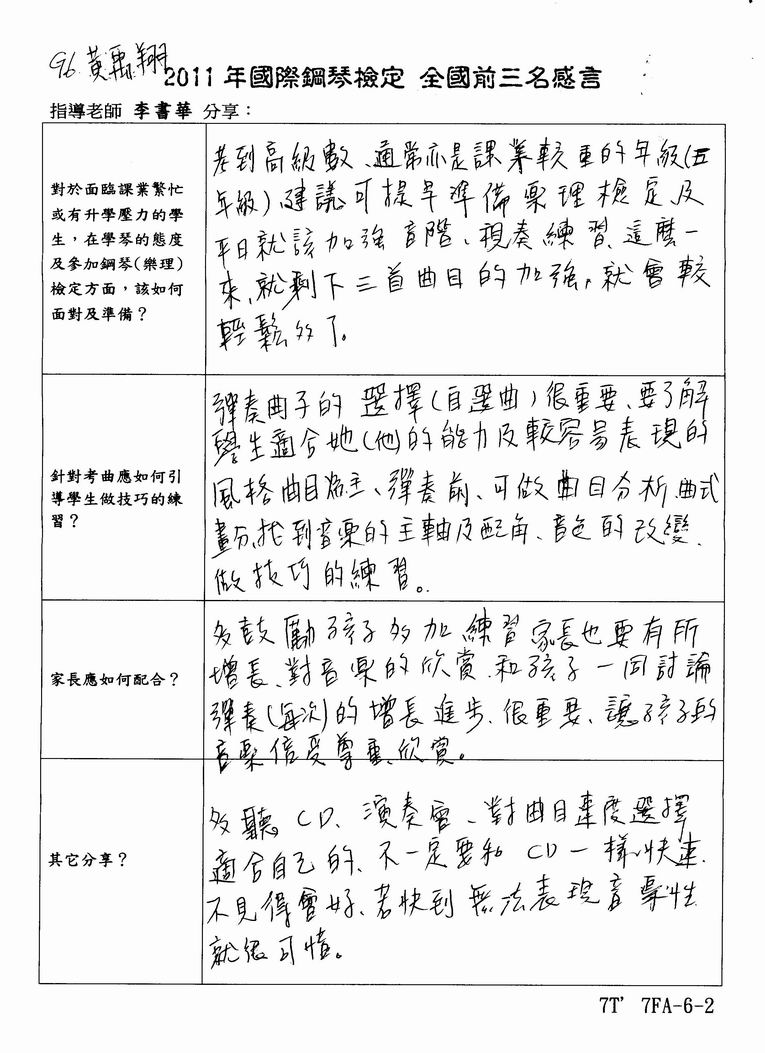 G6 黃禹翔
2011 年國際鋼琴檢定 全國前三名感言
指導老師 李書華 分享：
對於面臨課業繁忙
或有升學壓力的學
生，在學琴的態度
及參加鋼琴(樂理)
檢定方面，該如何
面對及準備？
考到高級數、通常亦是課業較重的年級(五
年級)、建議可提早準備樂理檢定、及
平日就該加強音階、視奏練習、這麼一
來、就剩下三首曲目的加強，就會較
輕鬆多了。
針對考曲應如何引
導學生做技巧的練
習？
彈奏曲子的選擇(自選曲)很重要、要了解
學生適合她(他)的能力及較容易表現的
風格曲目為主、彈奏前、可做曲目分析、曲式
劃分、找到音樂的主軸及配角、音色的改變、
做技巧的練習。
家長應如何配合？
多鼓勵孩子多加練習、家長也要有所
增長、對音樂的欣賞、和孩子一同討論
彈奏(每次)的增長進步、很重要、讓孩子的
音樂倍受尊重、欣賞。
其它分享？
多聽 CD、演奏會、對曲目速度選擇
適合自己的、不一定要和 CD 一樣、快速、
不見得會好、若快到無法表現音樂性
就很可惜。
7T' 7FA-6-2